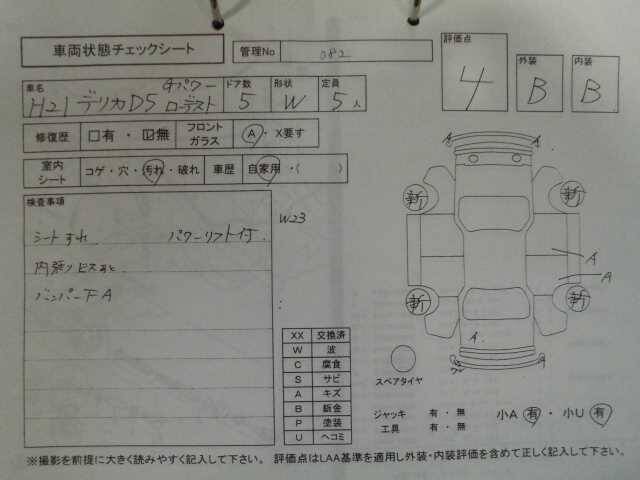 車両状態チェックシート
管理No 082
評価点 4
外装 B
内装 B
車名 H21 デリカD5 4パワー ローデスト
ドア数 5
形状 W
定員 5人
修復歴 □有・☑無
フロントガラス A・X要す
室内シート コゲ・穴・汚れ・破れ
車歴 自家用・( )
検査事項
シートすれ. パワーリフト付.
内張りビスあと
バンパー下A
W23
新 新
新 新
A A
A
A
A
A
XX 交換済
W 波
C 腐食
S サビ
A キズ
B 鈑金
P 塗装
U ヘコミ
スペアタイヤ
ジャッキ 有・無
工具 有・無
小A 有・小U 有
※撮影を前提に大きく読みやすく記入して下さい。 評価点はLAA基準を適用し外装・内装評価を含めて正しく記入して下さい。